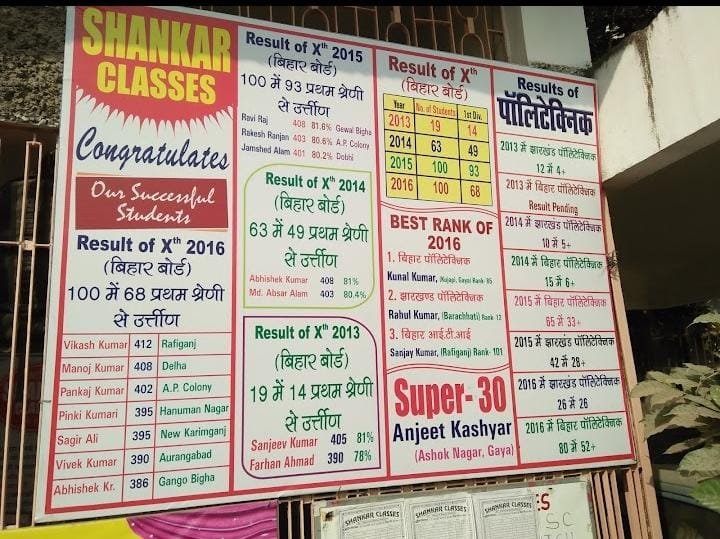 SHANKAR
CLASSES
Congratulates
Our Successful
Students
Result of Xth 2016
(बिहार बोर्ड)
100 में 68 प्रथम श्रेणी
से उर्त्तीण
Vikash Kumar 412 Rafiganj
Manoj Kumar 408 Delha
Pankaj Kumar 402 A.P. Colony
Pinki Kumari 395 Hanuman Nagar
Sagir Ali 395 New Karimganj
Vivek Kumar 390 Aurangabad
Abhishek Kr. 386 Gango Bigha
Result of Xth 2015
(बिहार बोर्ड)
100 में 93 प्रथम श्रेणी
से उर्त्तीण
Ravi Raj 408 81.6% Gewal Bigha
Rakesh Ranjan 403 80.6% A.P. Colony
Jamshed Alam 401 80.2% Dobhi
Result of Xth 2014
(बिहार बोर्ड)
63 में 49 प्रथम श्रेणी
से उर्त्तीण
Abhishek Kumar 408 81%
Md. Absar Alam 403 80.4%
Result of Xth 2013
(बिहार बोर्ड)
19 में 14 प्रथम श्रेणी
से उर्त्तीण
Sanjeev Kumar 405 81%
Farhan Ahmad 390 78%
Result of Xth
(बिहार बोर्ड)
Year No. of Students 1st Div.
2013 19 14
2014 63 49
2015 100 93
2016 100 68
BEST RANK OF
2016
1. बिहार पॉलिटेक्निक
Kunal Kumar, (Kujapi, Gaya) Rank- 95
2. झारखण्ड पॉलिटेक्निक
Rahul Kumar, (Barachhati) Rank- 12
3. बिहार आई.टी.आई
Sanjay Kumar, (Rafiganj) Rank- 101
Super- 30
Anjeet Kashyar
(Ashok Nagar, Gaya)
Results of
पॉलिटेक्निक
2013 में झारखंड पॉलिटेक्निक
12 में 4+
2013 में बिहार पॉलिटेक्निक
Result Pending
2014 में झारखंड पॉलिटेक्निक
10 में 5+
2014 में बिहार पॉलिटेक्निक
15 में 6+
2015 में बिहार पॉलिटेक्निक
65 में 33+
2015 में झारखंड पॉलिटेक्निक
42 में 28+
2016 में झारखंड पॉलिटेक्निक
26 में 26
2016 में बिहार पॉलिटेक्निक
80 में 52+
SHANKAR CLASSES
SHANKAR CLASSES
SHANKAR CLASSES
ES
SC